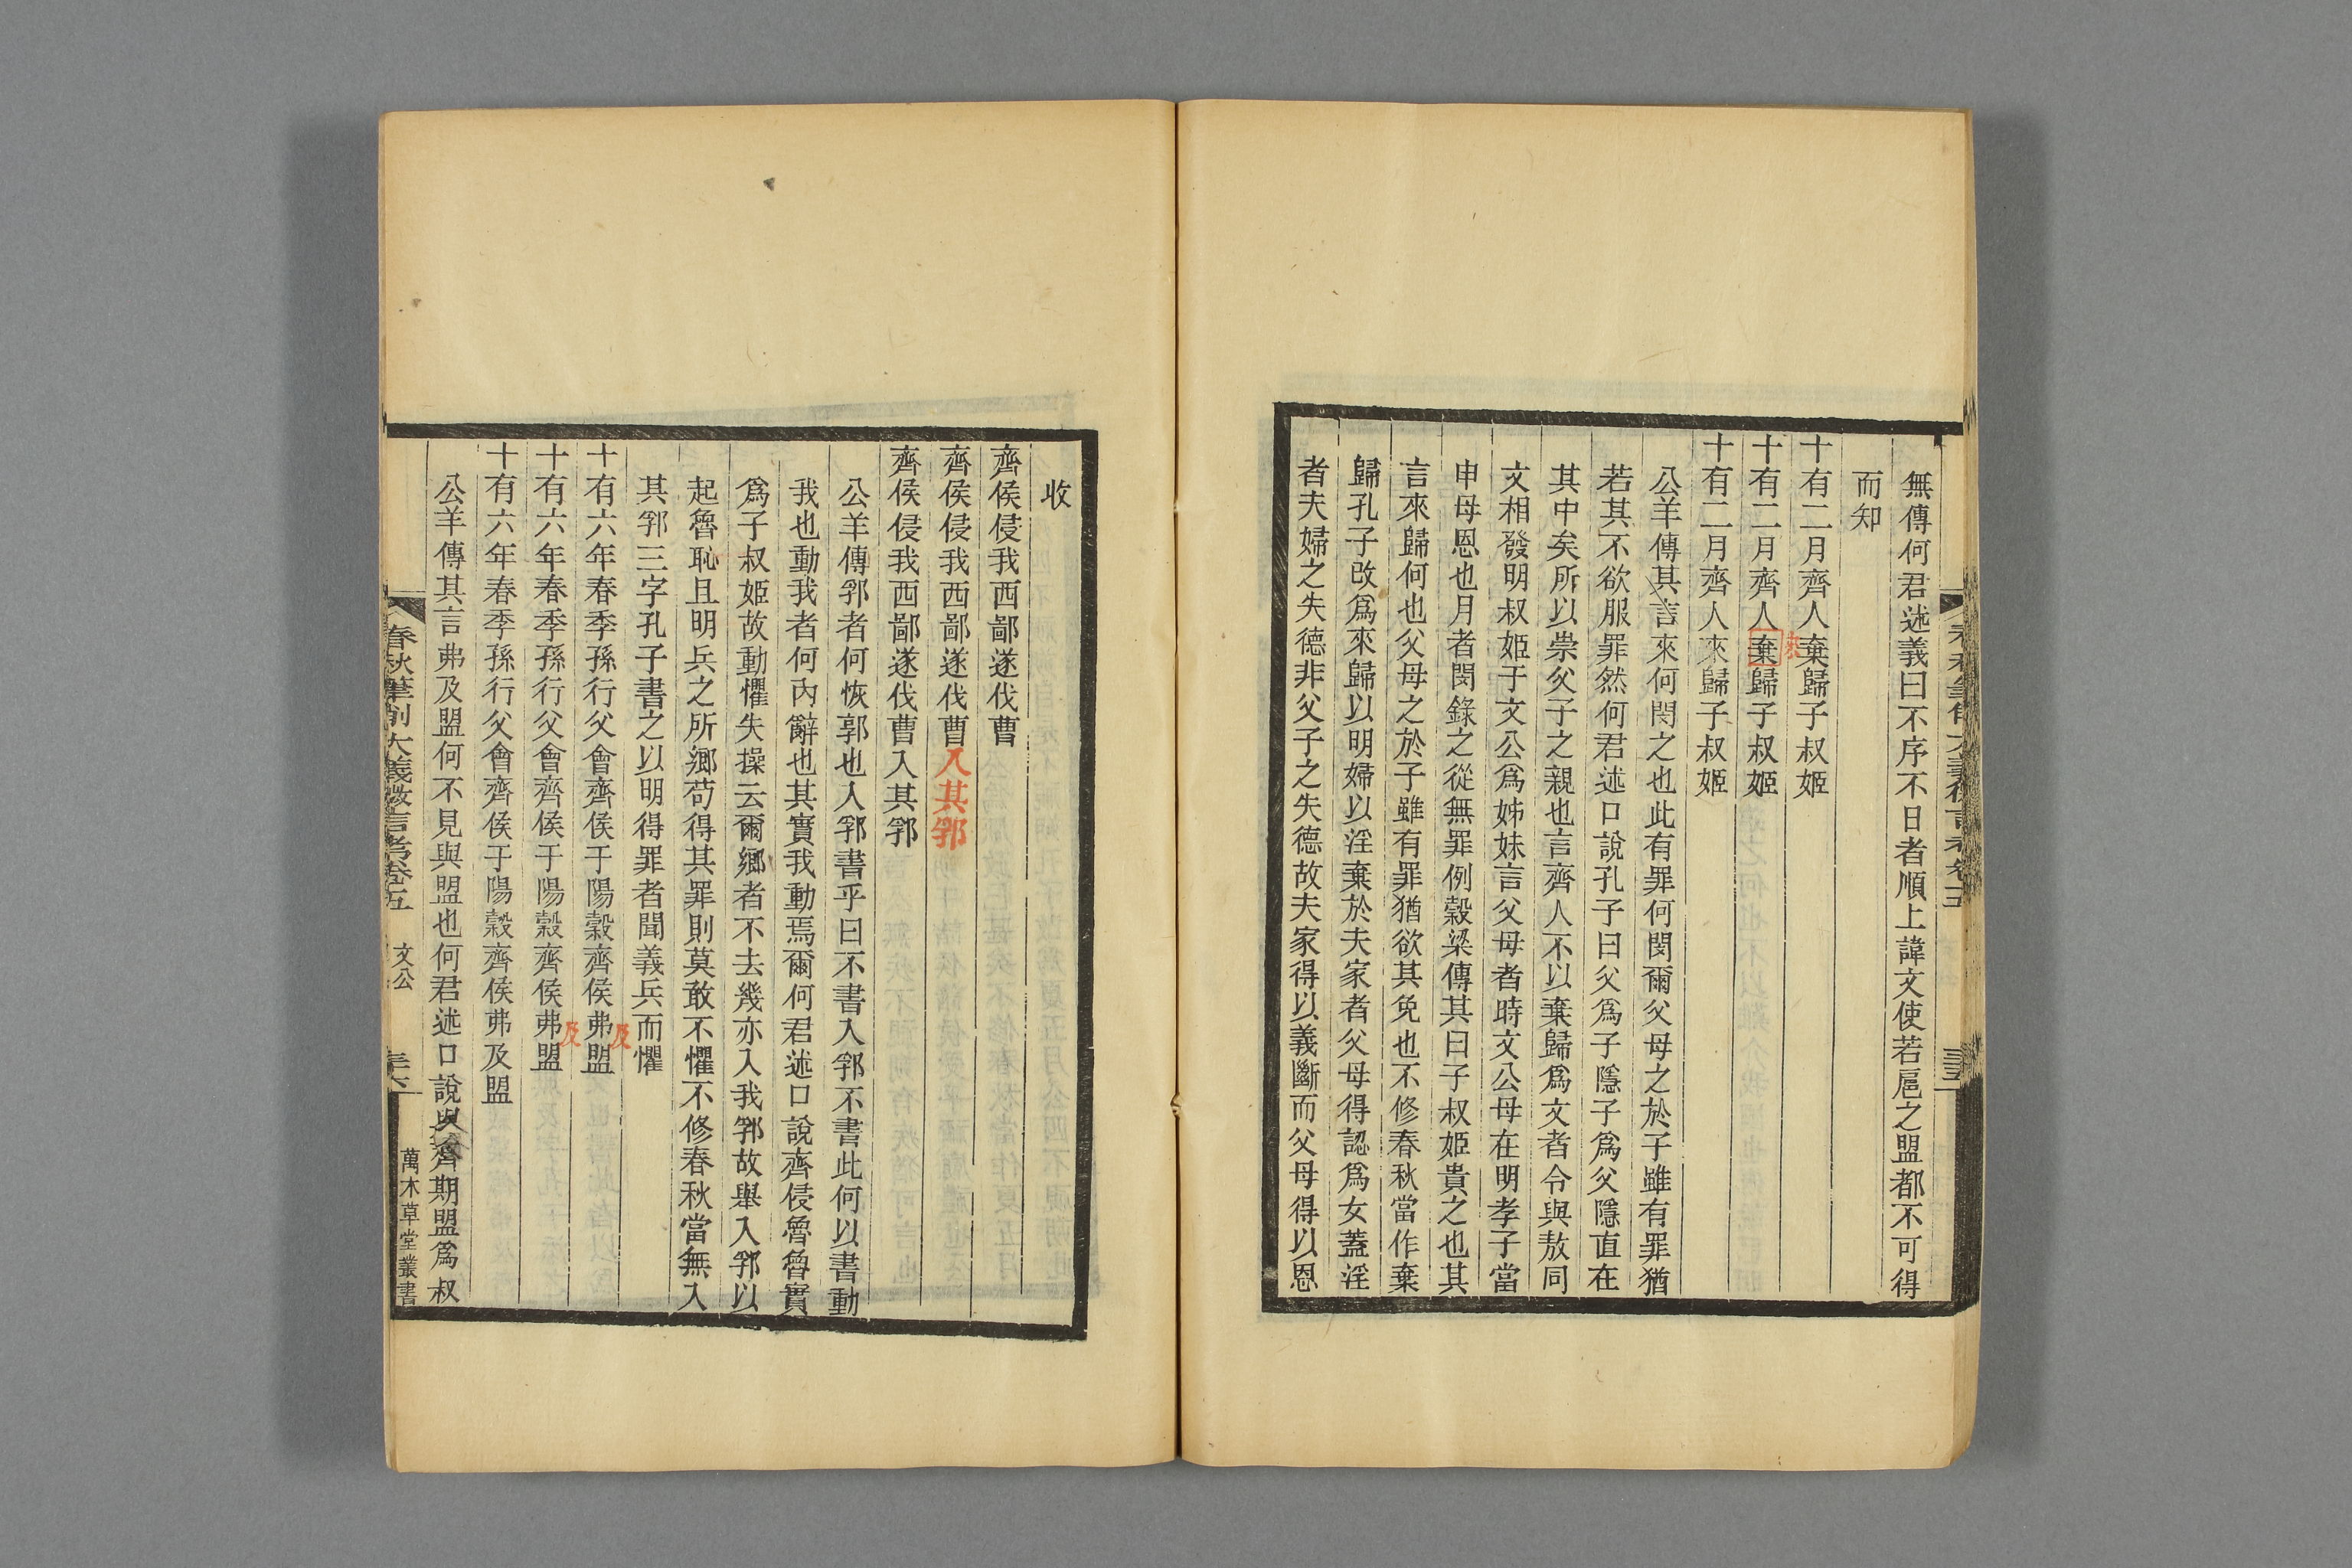 無傳何君述義曰不序不日者順上諱文使若扈之盟都不可得
而知
十有二月齊人棄歸子叔姬
來
十有二月齊人棄歸子叔姬
十有二月齊人來歸子叔姬
公羊傳其言來何閔之也此有罪何閔爾父母之於子雖有罪猶
若其不欲服罪然何君述口說孔子曰父爲子隱子爲父隱直在
其中矣所以崇父子之親也言齊人不以棄歸爲文者令與敖同
文相發明叔姬于文公爲姊妹言父母者時文公母在明孝子當
申母恩也月者閔錄之從無罪例穀梁傳其曰子叔姬貴之也其
言來歸何也父母之於子雖有罪猶欲其免也不修春秋當作棄
歸孔子改爲來歸以明婦以淫棄於夫家者父母得認爲女蓋淫
者夫婦之失德非父子之失德故夫家得以義斷而父母得以恩
收
齊侯侵我西鄙遂伐曹
齊侯侵我西鄙遂伐曹入其郛
齊侯侵我西鄙遂伐曹入其郛
公羊傳郛者何恢郭也入郛書乎曰不書入郛不書此何以書動
我也動我者何內辭也其實我動焉爾何君述口說齊侵魯魯實
爲子叔姬故動懼失操云爾鄉者不去幾亦入我郛故舉入郛以
起魯恥且明兵之所鄉苟得其罪則莫敢不懼不修春秋當無入
其郛三字孔子書之以明得罪者聞義兵而懼
十有六年春季孫行父會齊侯于陽穀齊侯弗盟
及
十有六年春季孫行父會齊侯于陽穀齊侯弗盟
及
十有六年春季孫行父會齊侯于陽穀齊侯弗及盟
公羊傳其言弗及盟何不見與盟也何君述口說與齊期盟爲叔
春秋筆削大義微言考卷五
文公
萬木草堂叢書